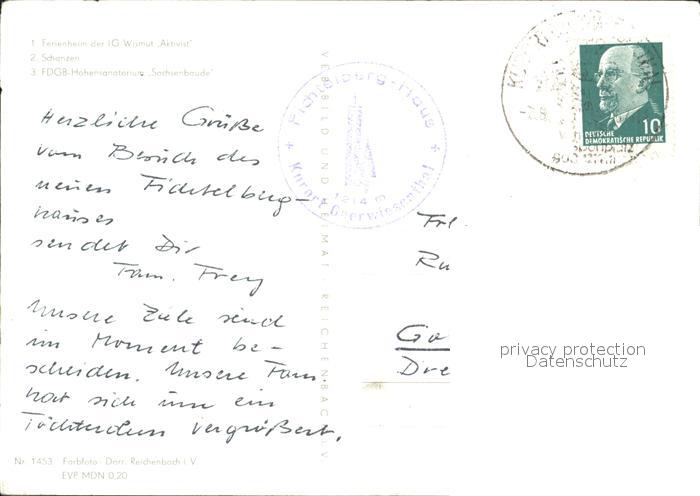 1 Ferienheim der IG Wismut „Aktivist"
2. Schanzen
3. FDGB-Höhensanatorium „Sachsenbaude"
Herzliche Grüße
vom Besuch des
neuen Fichtelberg-
hauses
sendet Dir
Fam. Frey
Unsere Ziele sind
im Moment be-
scheiden. Unsere Fam.
hat sich um ein
Töchterchen vergrößert.
Nr. 1453 Farbfoto-Darr, Reichenbach i. V.
EVP MDN 0,20
VERBILD UND HEIMAT REICHENBACH I. V
+ Fichtelberg-Haus +
1214 m
Kurort Oberwiesenthal
DEUTSCHE
DEMOKRATISCHE REPUBLIK
10
Frl
Ru
Dre
privacy protection
Datenschutz